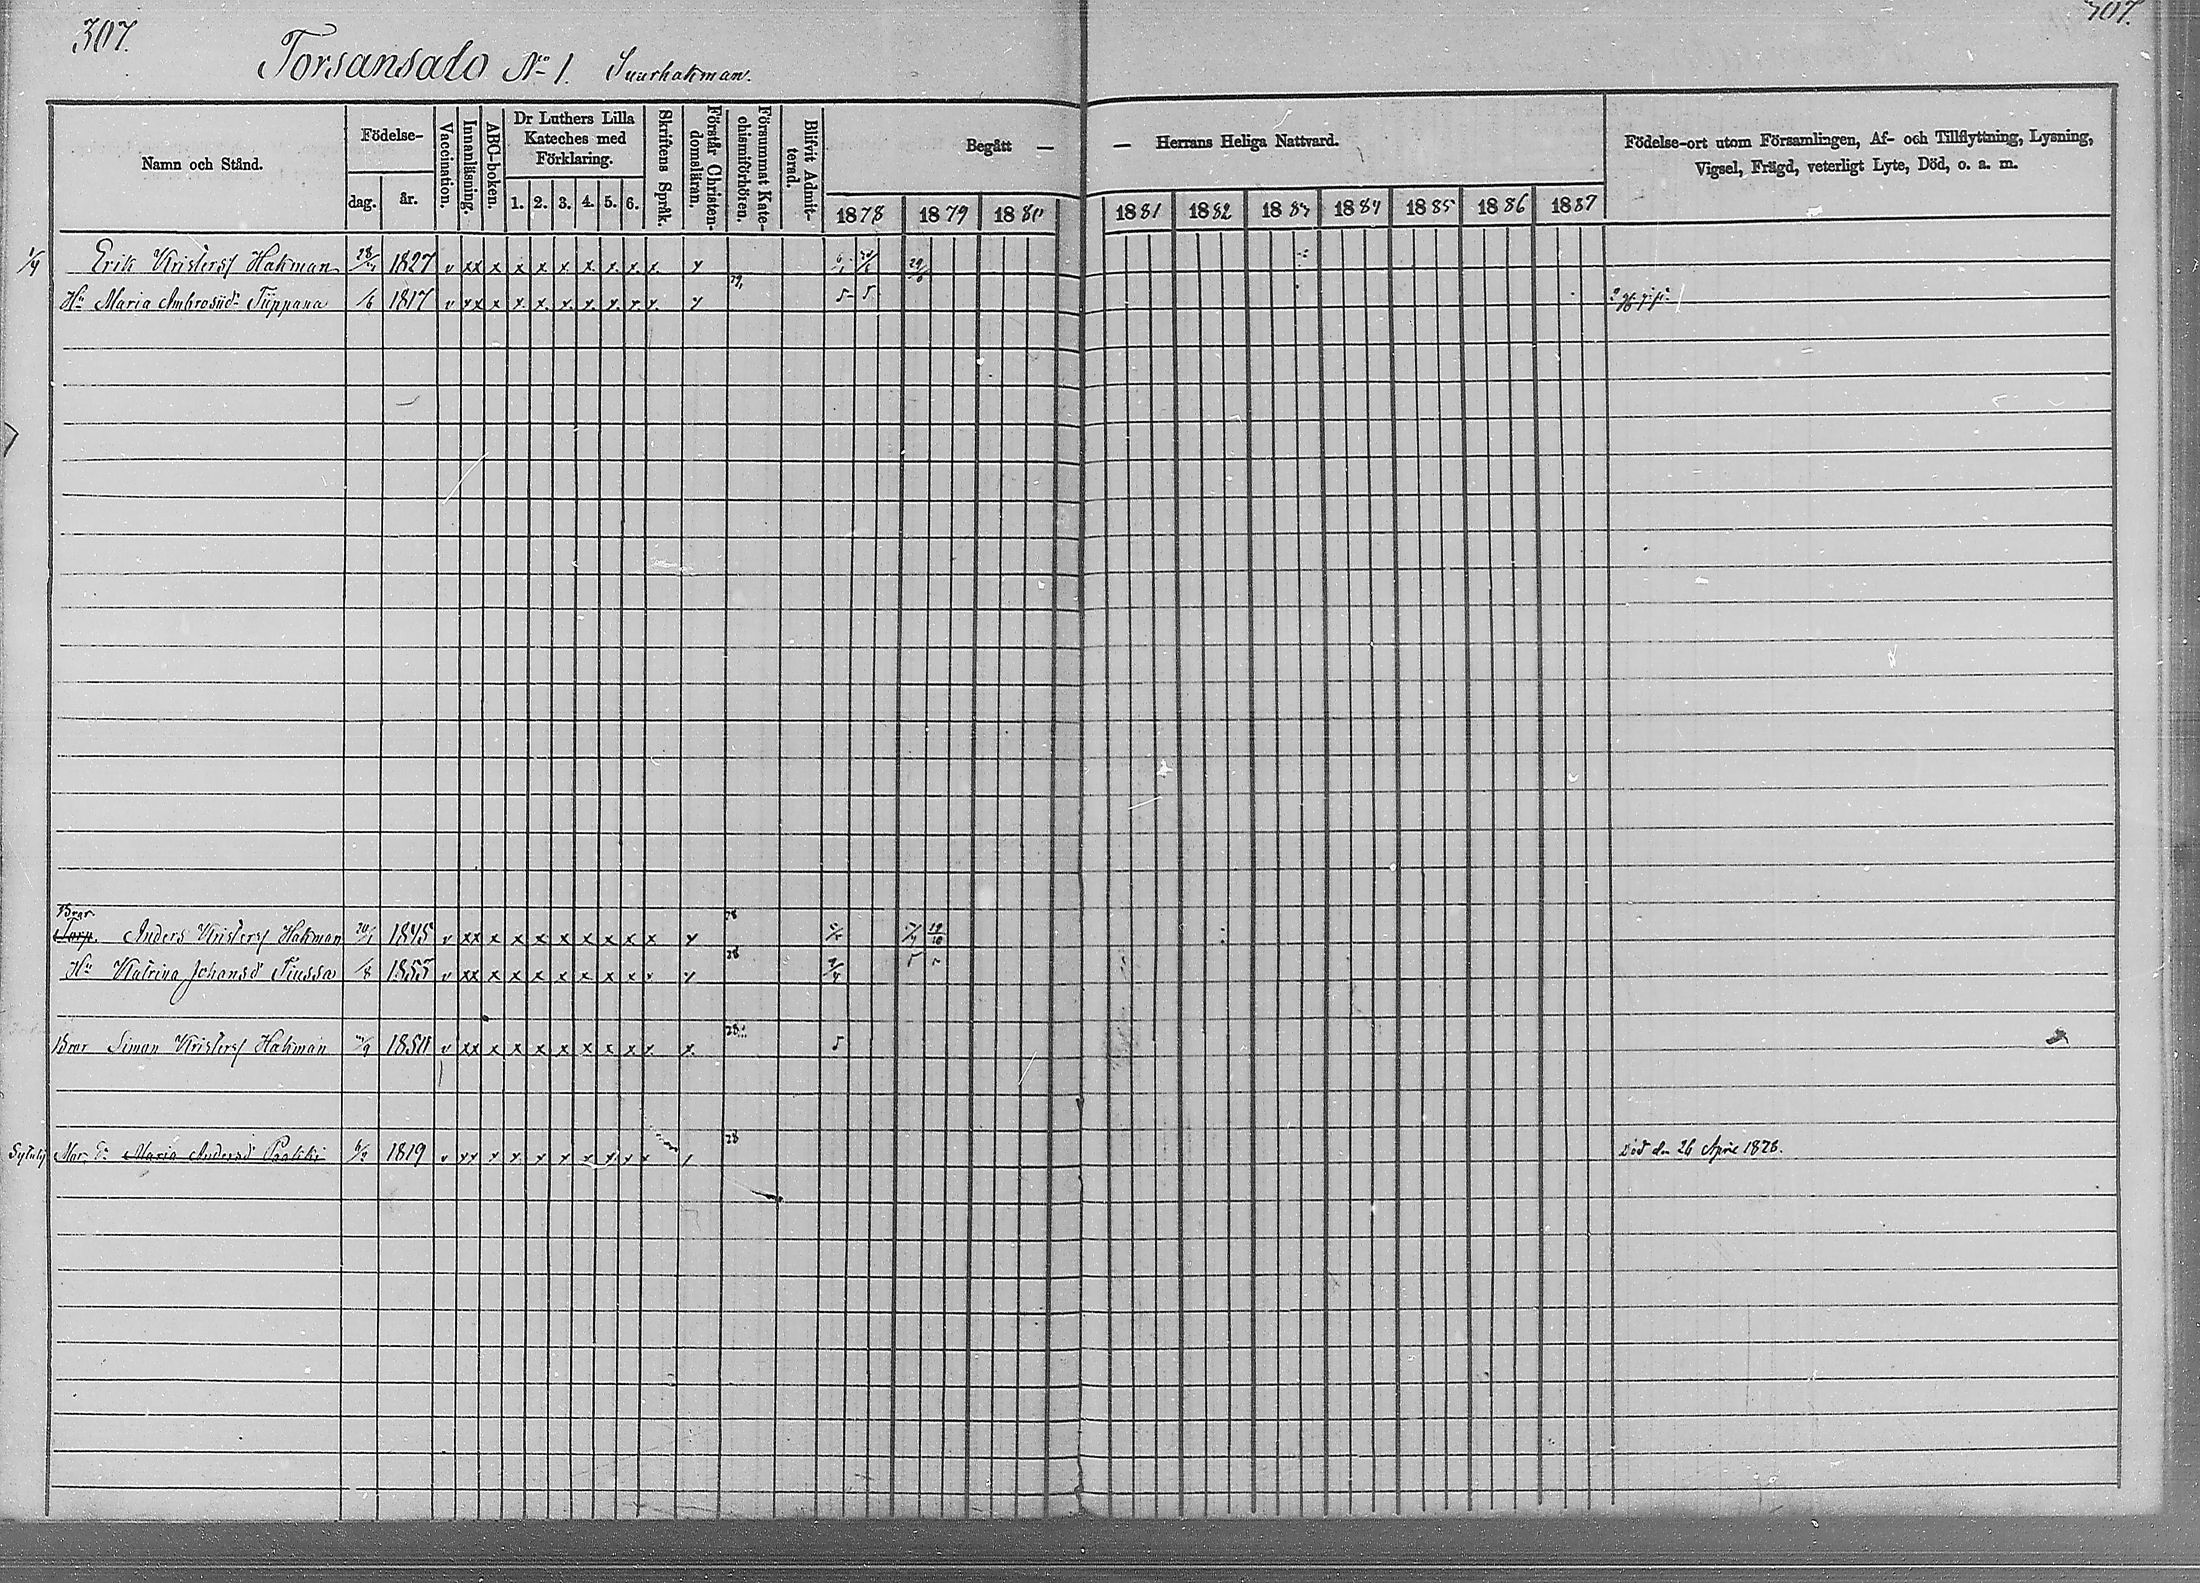 307.
307.
Torsansalo No 1. Suurhakman.
Namn och Stånd.
Födelse-
dag.
år.
Vaccination.
Innanläsning.
ABC-boken.
Dr Luthers Lilla
Kateches med
Förklaring.
1. 2. 3. 4. 5. 6.
Skriftens Språk.
Förstår Christen-
domsläran.
Försummat Kate-
chismiförhören.
Blifvit Admit-
terad.
Begått —
— Herrans Heliga Nattvard.
1878 1879 1880 1881 1882 1883 1884 1885 1886 1887
Födelse-ort utom Församlingen, Af- och Tillflyttning, Lysning,
Vigsel, Frägd, veterligt Lyte, Död, o. a. m.
Erik Kristersf Hakman 1827 v xx x x x x x x x x
Hu Maria Ambrosiid. Tiippana /6 1817 v xx x x x x x x x x
Bror
Torp. Anders Kristersf Hakman 1845 v xx x x x x x x x x
Hu Katrina Johansd Tiussa /8 1855 v xx x x x x x x x x
Bror Simon Kristersf Hakman 1850 v xx x x x x x x x x
Maria Andersd Paakki 1819 v xx x x x x x x x x
Död den 26 April 1878.